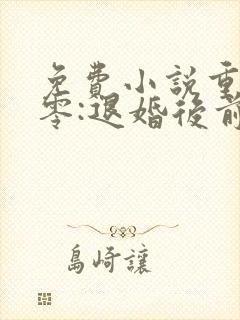 免費小說重
零:退婚後前
島崎讓